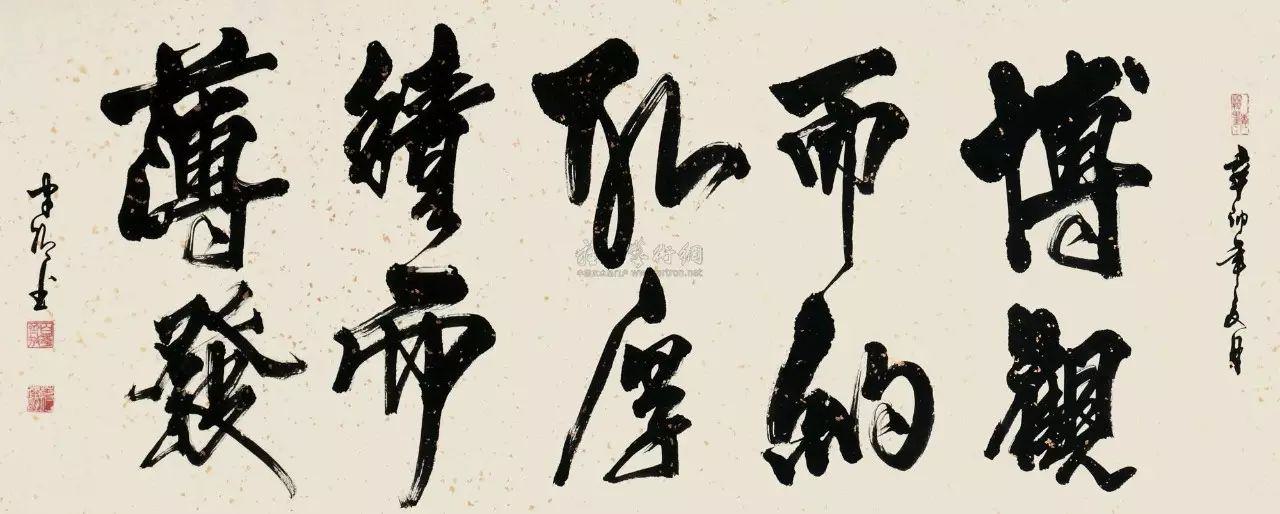 辛卯年夏月
博觀
而約
取厚
積而
薄發
雅昌藝術網
www.artron.net